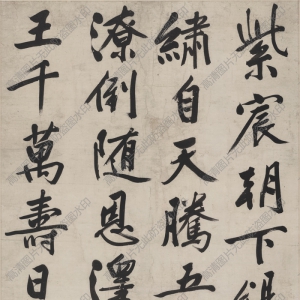 紫宸朝下
繡自天騰五
潦倒随恩澤
王千萬壽日